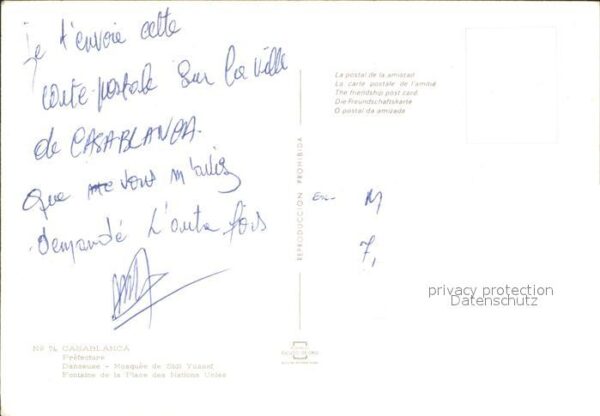 Je t'envoie cette
carte postale sur la ville
de CASABLANCA.
que vous m'aviez
demandé L'autre fois
La postal de la amistad
La carte postale de l'amitié
The friendship post card
Die Freundschaftskarte
O postal da amizade
REPRODUCCION PROHIBIDA
M
7,
privacy protection
Datenschutz
Nº 74 CASABLANCA
Préfecture
Danseuse - Mosquée de Sidi Yussef
Fontaine de la Place des Nations Unies